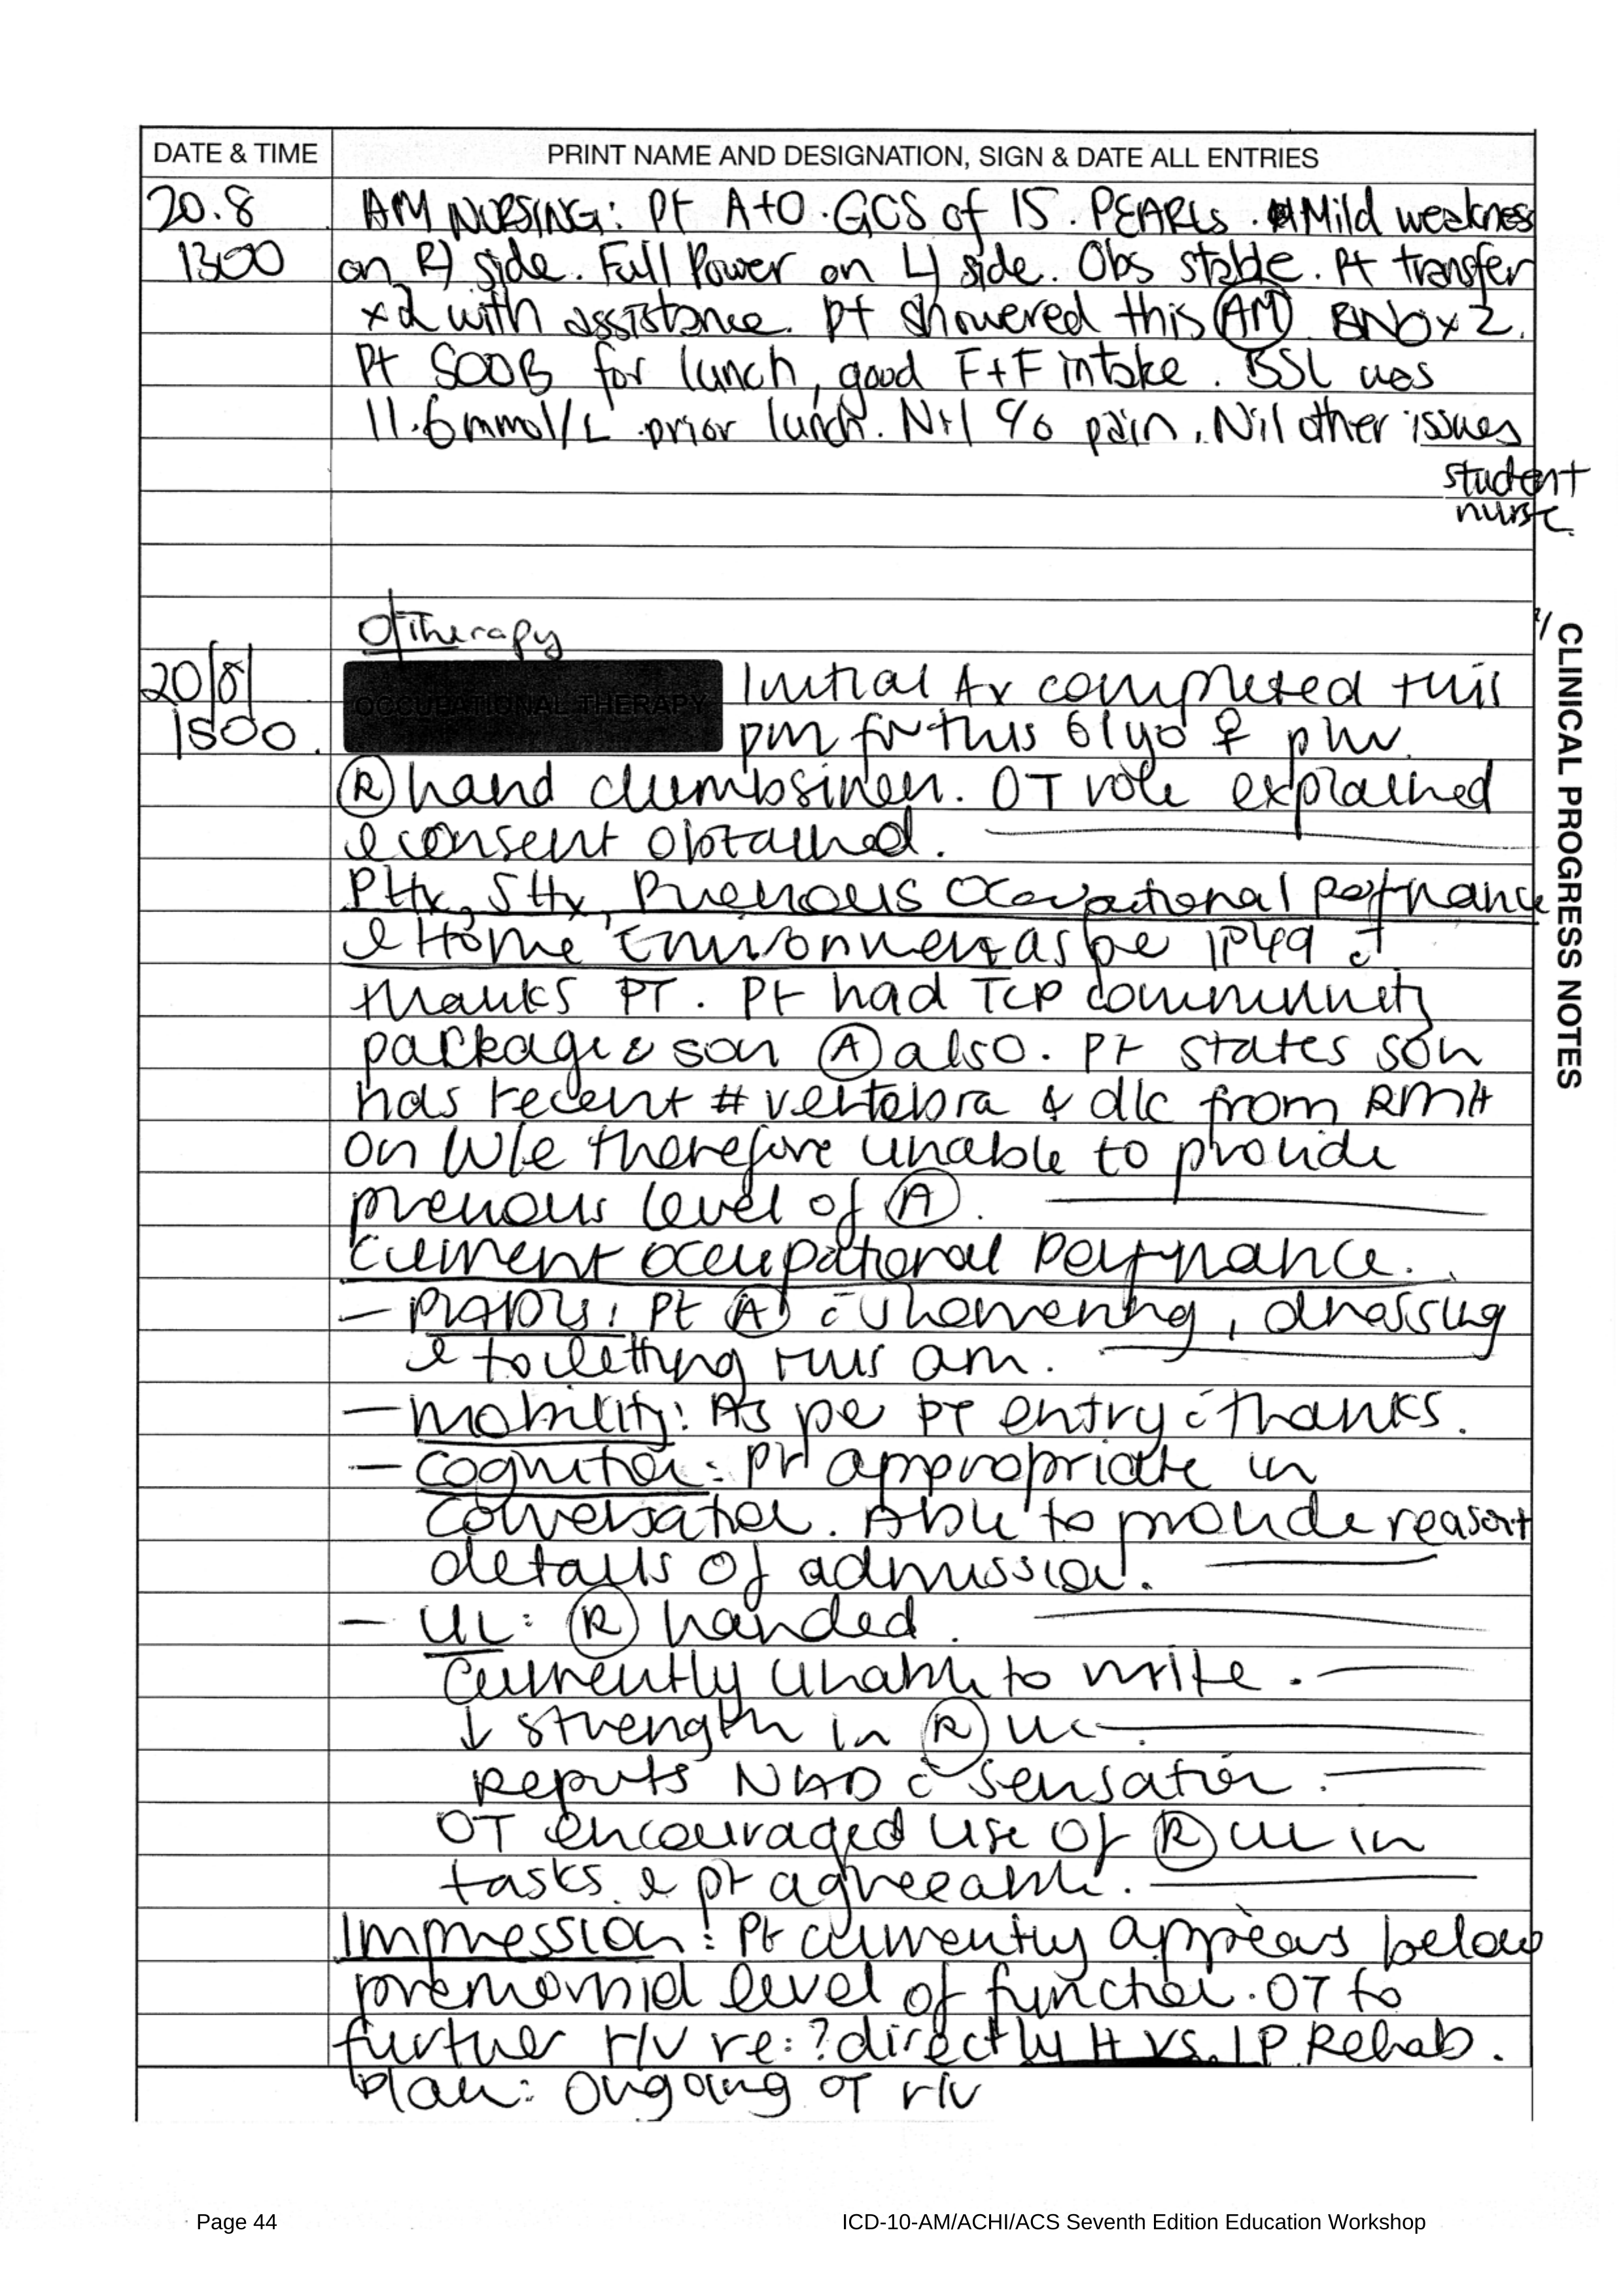 DATE & TIME PRINT NAME AND DESIGNATION, SIGN & DATE ALL ENTRIES
20.8 AM NURSING: Pt A+O. GCS of 15. PEARLs. Mild weakness
1300 on R) side. Full Power on L) side. Obs stable. Pt transfer
x2 with assistance. Pt showered this AM. BNOx2.
Pt SOOB for lunch, good F+F intake. BSL was
11.6mmol/L prior lunch. Nil c/o pain. Nil other issues
student
nurse.
O/Therapy
20/8/ OCCUPATIONAL THERAPY Initial Ax completed this
1500. pm for this 61yo ♀ p/w
R hand clumbsiness. OT role explained
& consent obtained.
PHx, SHx, Previous Occupational Performance
& Home Environment as per IP49 c̄
thanks PT. Pt had TCP community
package & son A also. Pt states son
has recent # vertebra & d/c from RMH
on W/e therefore unable to provide
previous level of A.
Current Occupational Performance.
- PADLs: Pt A c̄ showering, dressing
& toiletting this am.
- Mobility: As per PT entry c̄ thanks.
- Cognition: Pt appropriate in
conversation. Able to provide reason +
details of admission.
- UL: R handed.
Currently unable to write.
↓ strength in R UL.
Reports NAD c̄ sensation.
OT encouraged use of R UL in
tasks & pt agreeable.
Impression: Pt currently appears below
premorbid level of function. OT to
further r/v re: ? directly H vs. IP Rehab.
Plan: Ongoing OT r/v
CLINICAL PROGRESS NOTES
Page 44 ICD-10-AM/ACHI/ACS Seventh Edition Education Workshop